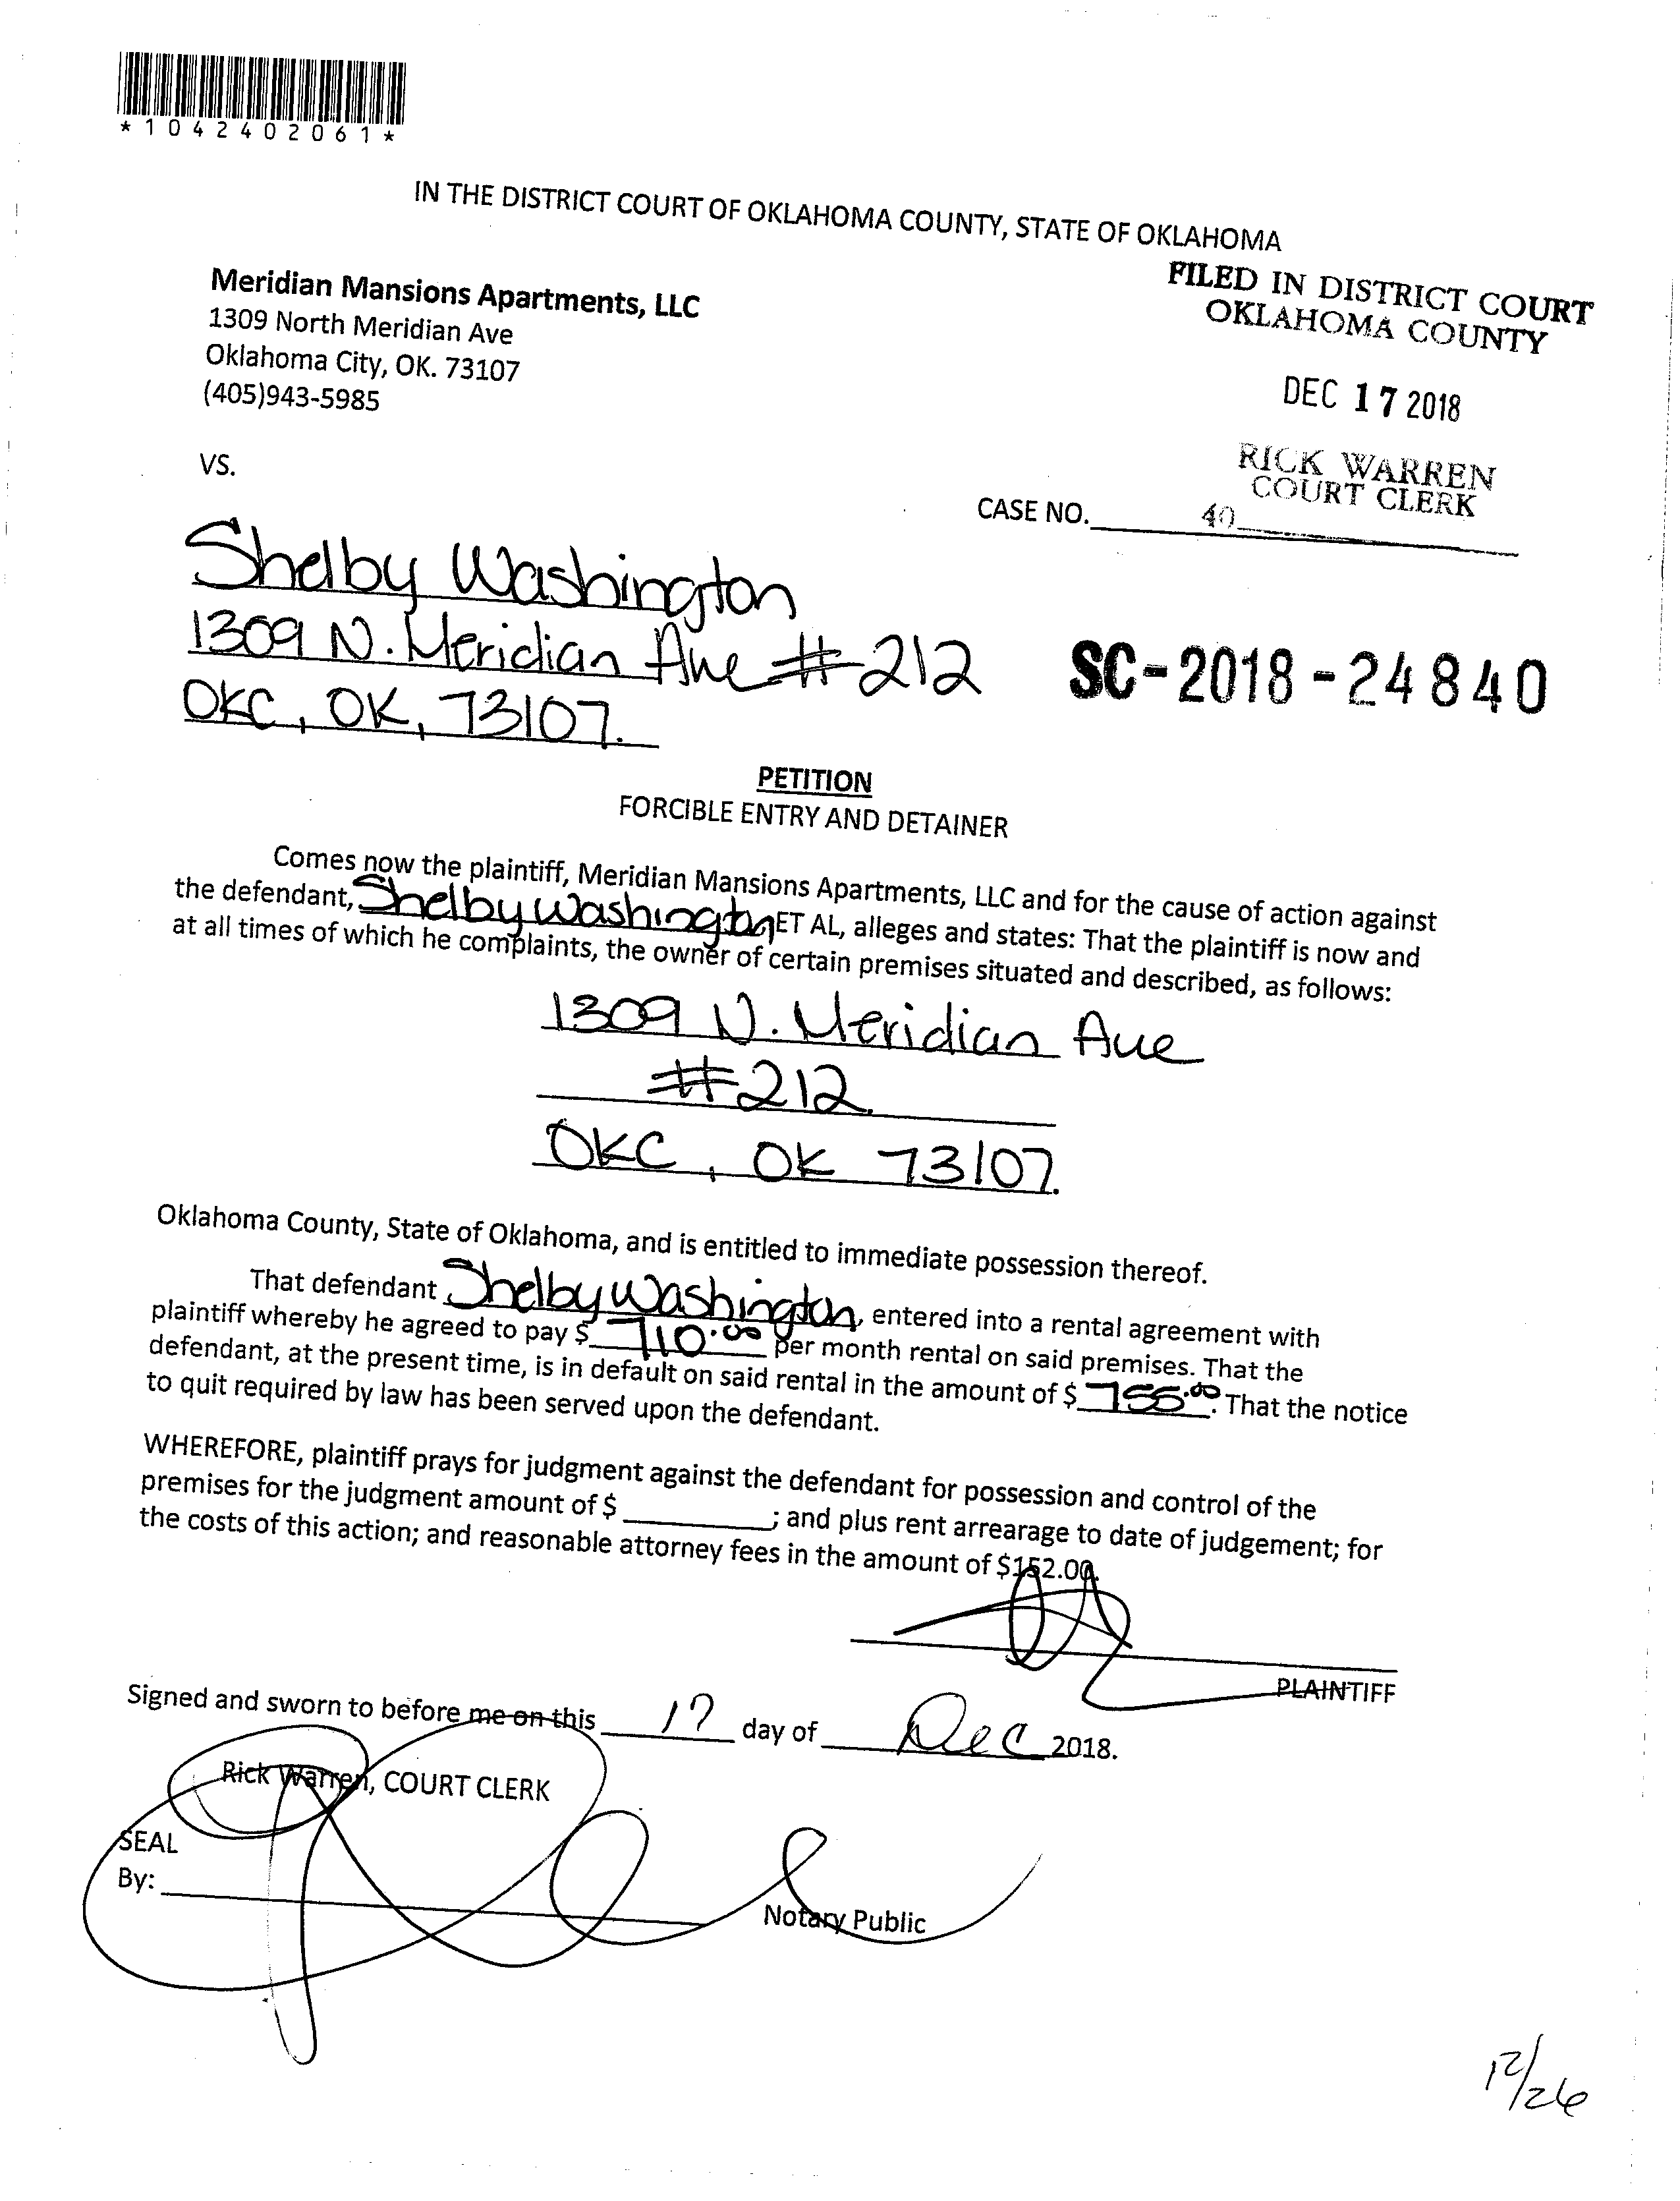 *1042402061*
IN THE DISTRICT COURT OF OKLAHOMA COUNTY, STATE OF OKLAHOMA
FILED IN DISTRICT COURT
OKLAHOMA COUNTY
DEC 17 2018
RICK WARREN
COURT CLERK
Meridian Mansions Apartments, LLC
1309 North Meridian Ave
Oklahoma City, OK. 73107
(405)943-5985
VS.
CASE NO. 40
Shelby Washington
1309 N. Meridian Ave #212
OKC, OK, 73107.
SC-2018-24840
PETITION
FORCIBLE ENTRY AND DETAINER
Comes now the plaintiff, Meridian Mansions Apartments, LLC and for the cause of action against
the defendant, Shelby Washington ET AL, alleges and states: That the plaintiff is now and
at all times of which he complaints, the owner of certain premises situated and described, as follows:
1309 N. Meridian Ave
#212
OKC, OK 73107.
Oklahoma County, State of Oklahoma, and is entitled to immediate possession thereof.
That defendant Shelby Washington, entered into a rental agreement with
plaintiff whereby he agreed to pay $ 710.00 per month rental on said premises. That the
defendant, at the present time, is in default on said rental in the amount of $ 755.00. That the notice
to quit required by law has been served upon the defendant.
WHEREFORE, plaintiff prays for judgment against the defendant for possession and control of the
premises for the judgment amount of $ ; and plus rent arrearage to date of judgement; for
the costs of this action; and reasonable attorney fees in the amount of $152.00.
PLAINTIFF
Signed and sworn to before me on this 17 day of Dec 2018.
Rick Warren, COURT CLERK
SEAL
By:
Notary Public
12/26